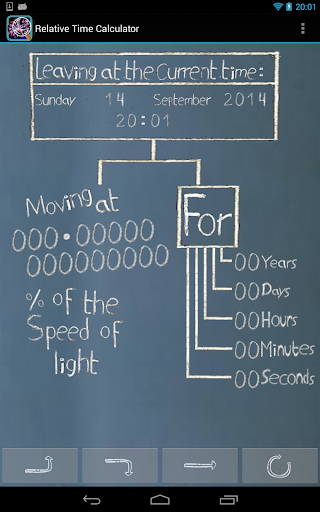 20:01
Relative Time Calculator
Leaving at the Current time:
Sunday 14 September 2014
20:01
Moving at
000.00000
000000000
% of the
Speed of
light
For
00Years
00Days
00Hours
00Minutes
00Seconds